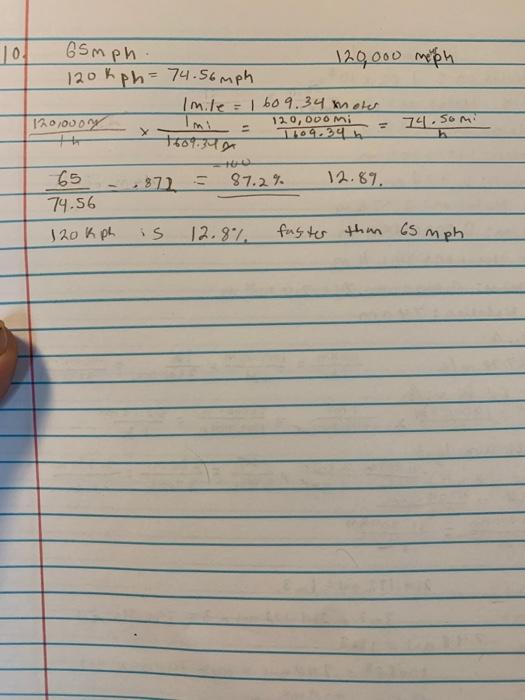 10. 65mph. 120,000 meph
120 Kph = 74.56mph
1mile = 1609.34 meter
120,000m / 1h × 1mi / 1609.34m = 120,000mi / 1609.34h = 74.56mi / h
-100
65 / 74.56 = .872 = 87.2% 12.8%.
120 Kph is 12.8%. faster than 65 mph